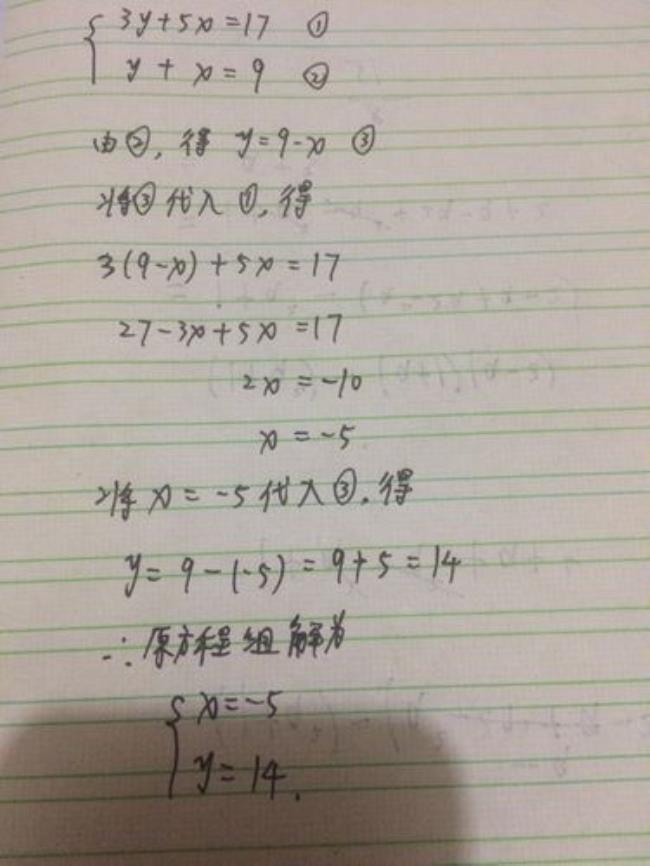 { 3y+5x=17 ①
y+x=9 ②
由②,得 y=9-x ③
将③代入①,得
3(9-x)+5x=17
27-3x+5x=17
2x=-10
x=-5
将x=-5代入③,得
y=9-(-5)=9+5=14
∴原方程组解为
{ x=-5
y=14.